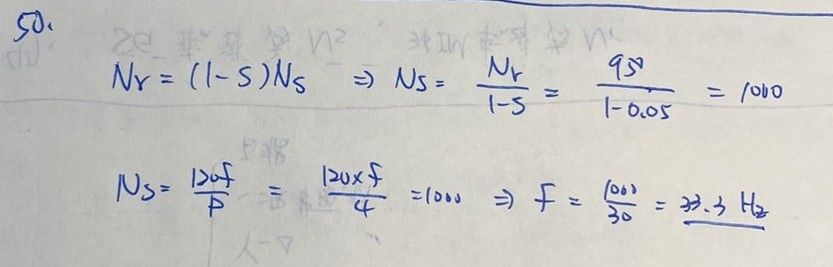 50.
Nr = (1-S)Ns ⇒ Ns = Nr/1-S = 950/1-0.05 = 1000
Ns = 120f/P = 120×f/4 = 1000 ⇒ f = 1000/30 = 33.3 Hz